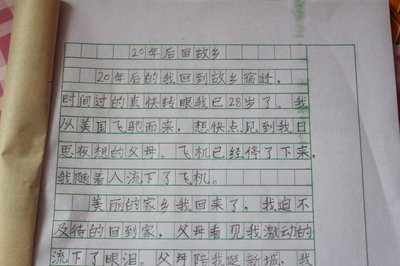 20年后回故乡
20年后的我回到故乡宿迁,
时间过的真快转眼我已28岁了。我
从美国飞驰而来,想快点见到我日
思夜想的父母。飞机已经停了下来,
我随着人流下了飞机。
美丽的家乡我回来了,我迫不
及待的回到家,父母看见我激动的
流下了眼泪。父母陪我逛新城,我